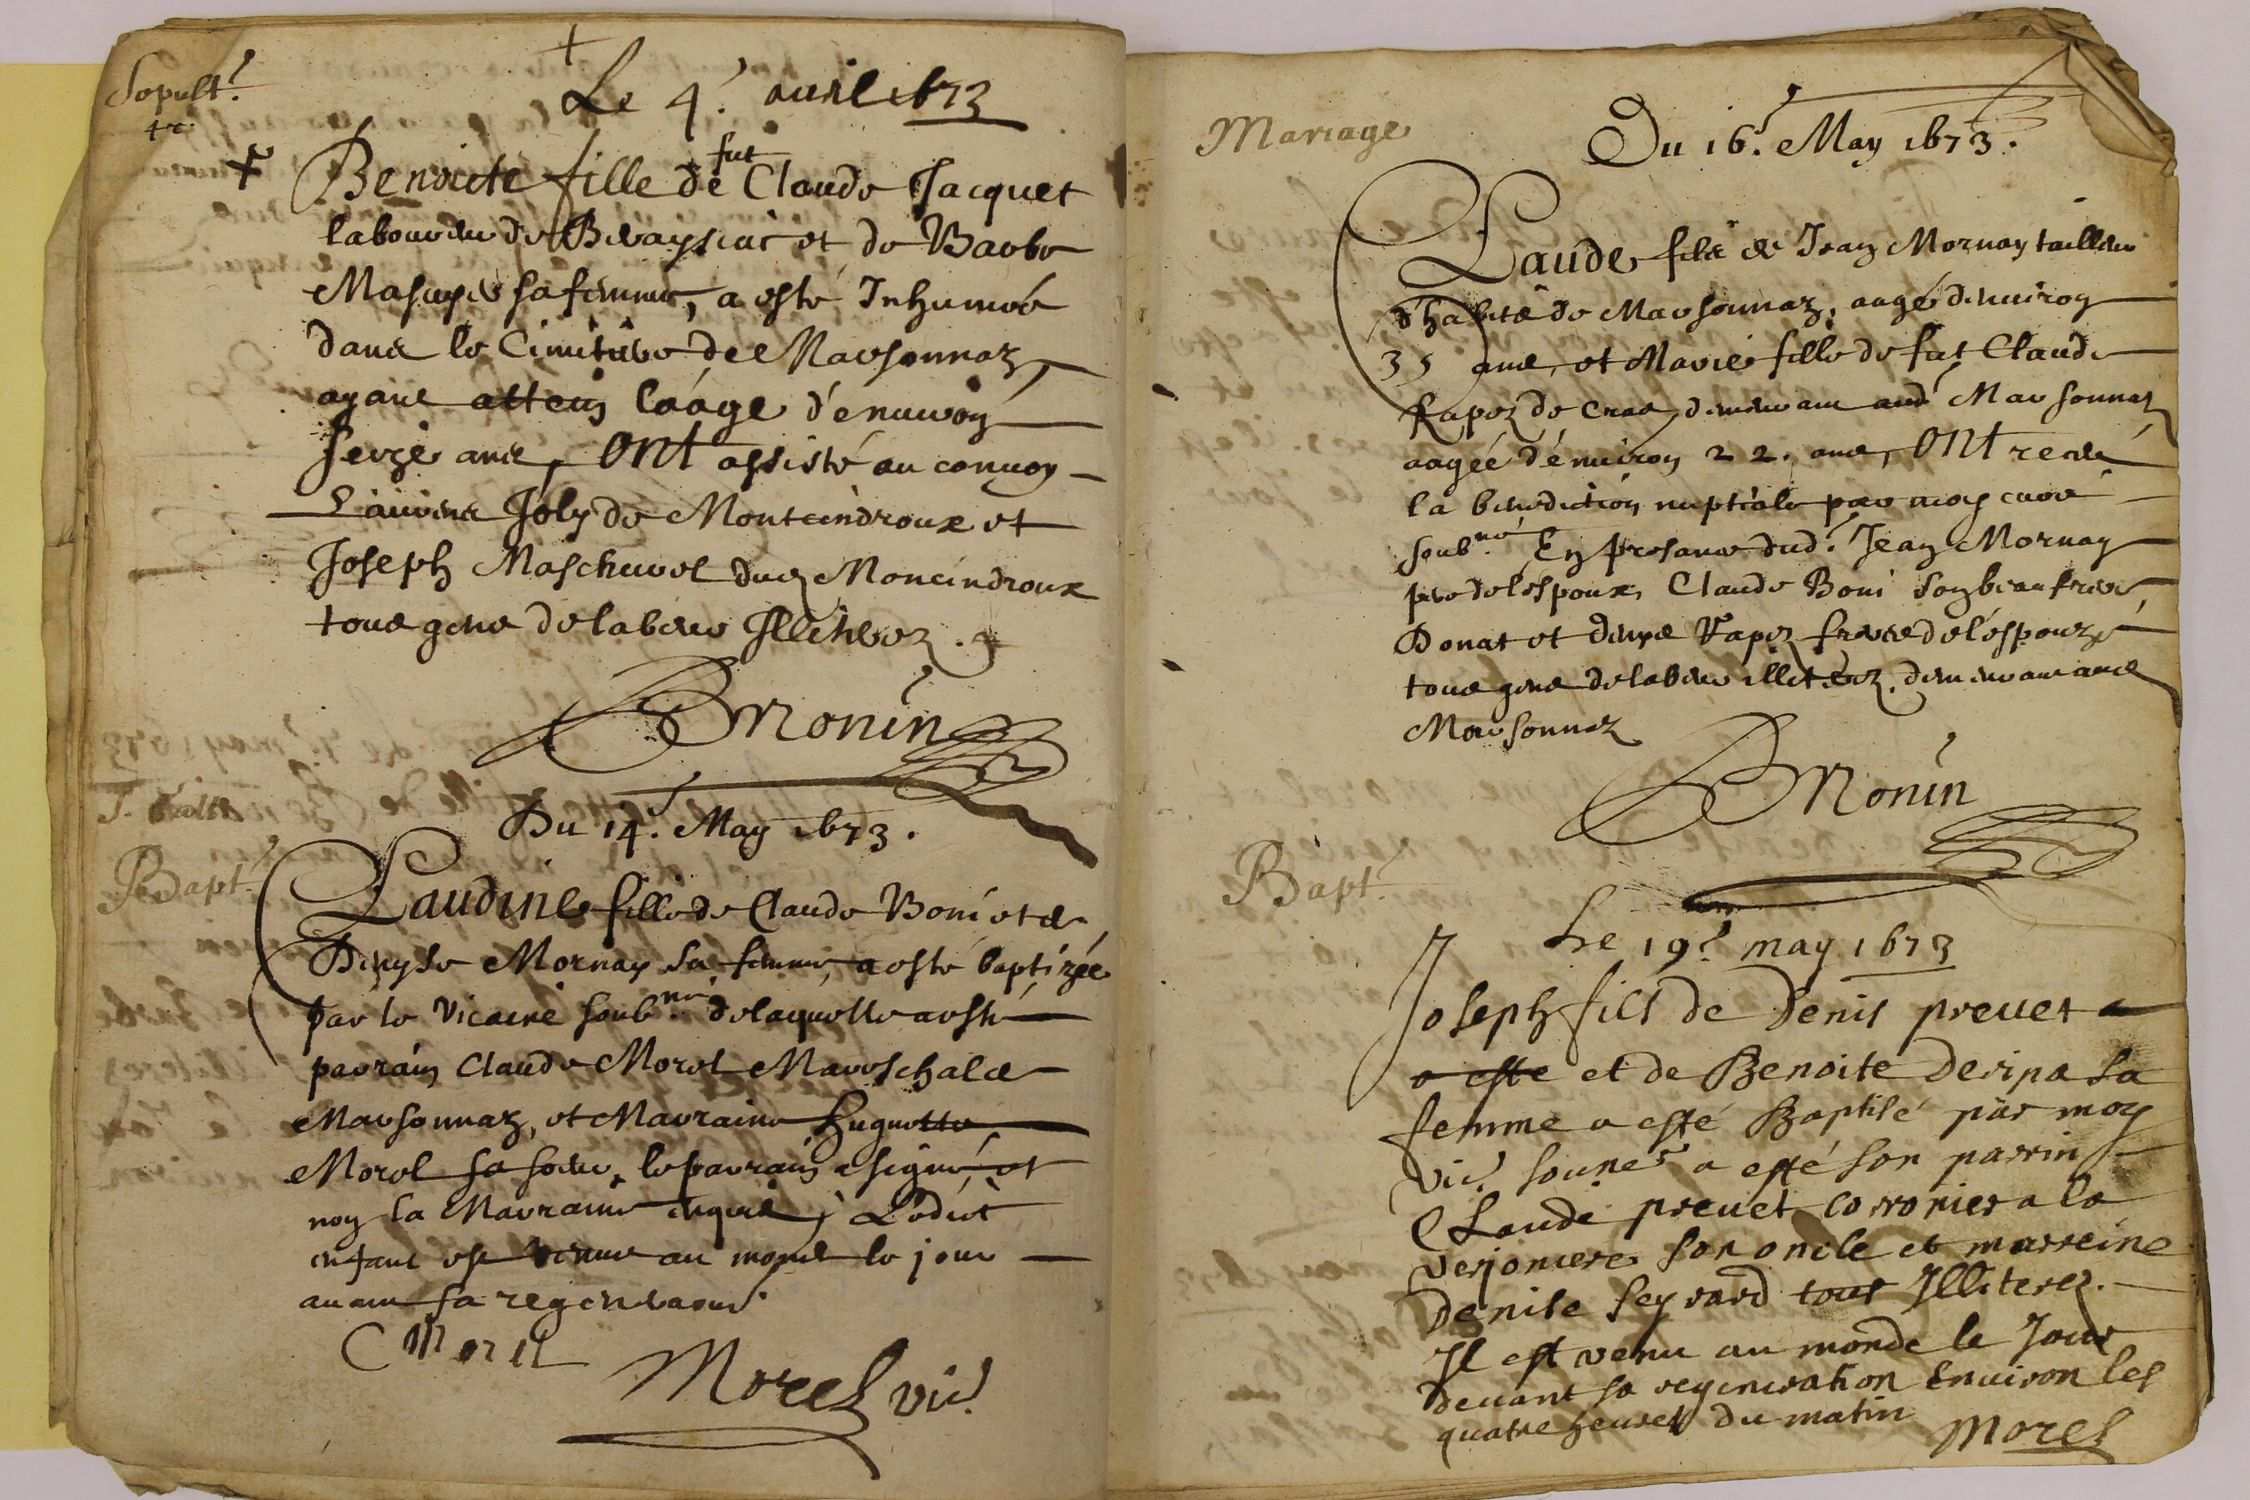 Sepult.ʳ
Le 4.ᵉ auril 1673
Benoicte fille de fut Claude Jacquet
laboureur de et de Barbe
sa femme, a esté Inhumée
dans le Cimitiere de Marsonnaz,
ayant atteint l'aage d'enuiron
seize ans, ONt assisté au conuoy
Joly de Montcindroux et
Joseph Maschurel dud Moncindroux
tous gens de labeur Illiterez.
BMonin
Du 14.ᵉ May 1673.
Bapt.ᵉ
Claudine fille de Claude Boni et de
Denyse Mornay sa femme, a esté baptizée
par le Vicaire soub.ⁿᵉ de laquelle a esté
parrain Claude Morel Mareschal de
Marsonnaz, et Marraine Huguette
Morel sa soeur, le parrain a signé, et
non la Marraine enquise, Ledict
enfant est venue au monde le jour
auant sa regeneraõn.
C Morel
Morel vic.
Mariage
Du 16.ᵉ May 1673.
Claude fils de Jean Mornay tailleur
d'habits de Marsonnaz, aagé d'enuiron
35 ans, et Marie fille de fut Claude
Rapoz de Cras, demeurant aud Marsonnaz
aagée d'enuiron 22. ans, ONt receu
la benediction nuptiale par moy curé
soub.ⁿᵉ En presance dud.ᵗ Jean Mornay
pere de l'espoux, Claude Boni son beaufrere,
Donat et denys Rapoz freres de l'espouze
tous gens de labeur illiterez, demeurans aud
Marsonnaz
BMonin
Bapt.ᵉ
Le 19.ᵉ may 1673
Joseph fils de Denis preuet a
a esté et de Benoite sa
femme a esté Baptisé par moy
vic. souné a esté son parrin
Claude preuet a la
son oncle et marreine
Denise tous Illiterez.
Il est venu au monde le Jour
deuant sa regeneration Enuiron les
quatre heures du matin
Morel